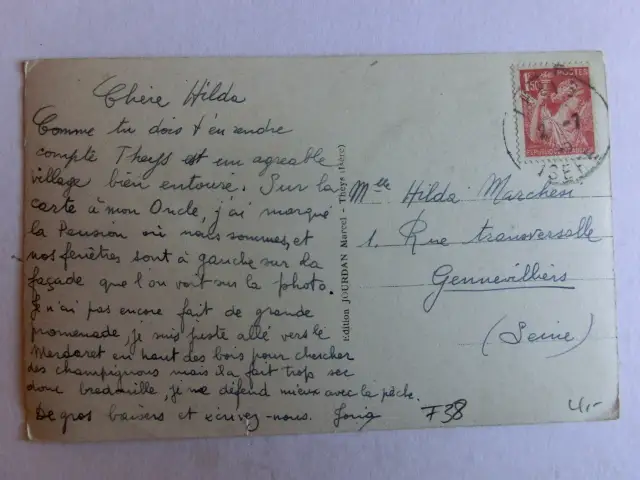 Chère Hilda
Comme tu dois t'en rendre
compte Theys est un agréable
village bien entouré. Sur la
carte à mon Oncle, j'ai marqué
la Pension où nous sommes, et
nos fenêtres sont à gauche sur la
façade que l'on voit sur la photo.
Je n'ai pas encore fait de grande
promenade, je suis juste allé vers le
Merdaret en haut des bois pour chercher
des champignons mais il a fait trop sec
donc bredouille, je me défend mieux avec la pêche.
De gros baisers et écrivez-nous.
Edition JOURDAN Marcel - Theys (Isère)
1F50 POSTES
ISERE
Mlle Hilda Marchesi
1, Rue transversale
Gennevilliers
(Seine)
F38
4,-